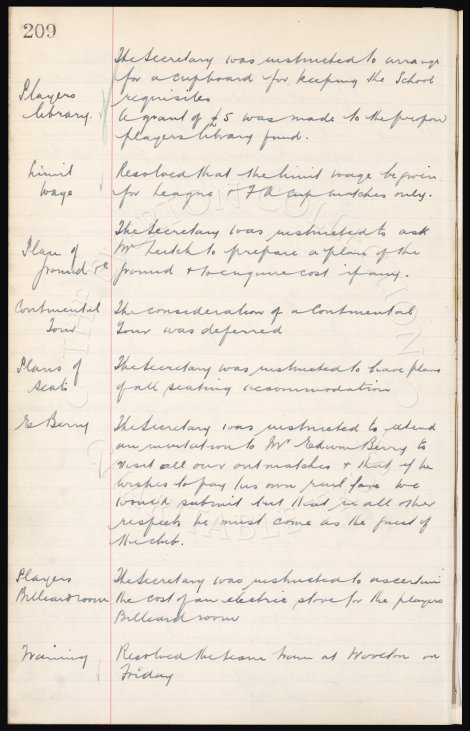 209
The Secretary was instructed to arrange
for a cupboard for keeping the School
requisites
Players
library.
A grant of £5 was made to the propos
players library fund.
Limit
Wage
Resolved that the limit wage be given
for League & F A Cup matches only.
Plan of
ground &c
The Secretary was instructed to ask
Mr Leitch to prepare a plan of the
ground & to enquire cost if any.
Continental
Tour
The consideration of a Continental
Tour was deferred
Plans of
Seats
The Secretary was instructed to have plans
of all seating accommodation
E Berry
The Secretary was instructed to extend
an invitation to Mr Edwin Berry to
visit all our outmatches & that if he
wishes to pay his own rail fare we
would submit but that in all other
respects he must come as the guest of
the club.
Players
Billiard room
The Secretary was instructed to ascertain
the cost of an electric stove for the players
Billiard room
Training
Resolved the team train at Woolton on
Friday
THE EVERTON COLLECTION
CHARITABLE TRUST